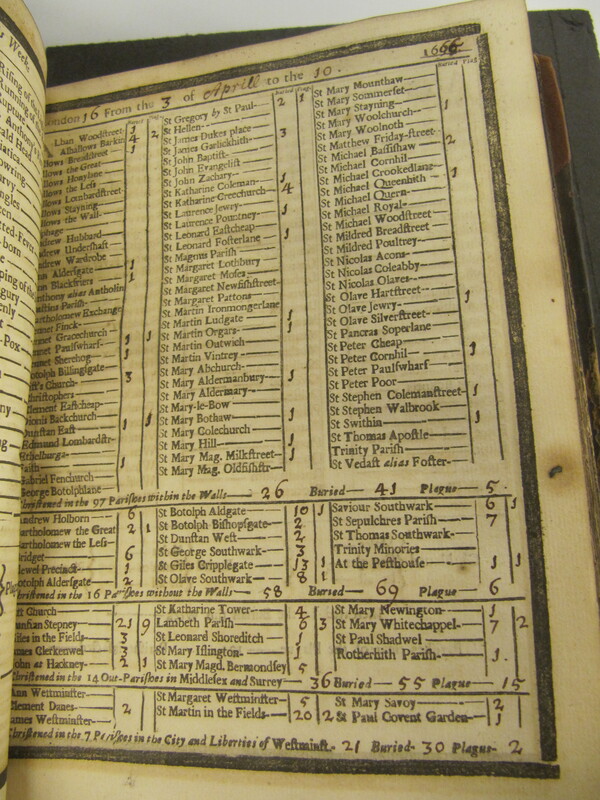 Weeks
London 16 From the 3 of Aprill to the 10. 1666
Buried Plag
lban Woodstreet 1
Alhallows Barkin 4 2
llows Breadstreet 1
llows the Great
llows Honylane
llows the Less
llows Lombardstreet
llows Stayning
llows the Wall
drew Hubbard
drew Undershaft
drew Wardrobe
Aldersgate 1
Blackfriers 1
nthony alias Antholins
ustins Parish
artholomew Exchange
nnet Finck
nnet Gracechurch 1 1
nnet Paulswharf 1
nnet Sherehog 1
otolph Billingsgate 3
Church
hristophers
lement Eastcheap
ionis Backchurch 1 1
unstan East
dmund Lombardstr
thelburga
aith 1
abriel Fenchurch
George Botolphlane
Buried Plag
St Gregory by St Paul 2 1
St Hellen
St James Dukes place
St James Garlickhith 3
St John Baptist
St John Evangelist
St John Zachary 1
St Katharine Coleman
St Katharine Creechurch 4
St Laurence Jewry 1
St Laurence Pountney
St Leonard Eastcheap 1
St Leonard Fosterlane
St Magnus Parish
St Margaret Lothbury
St Margaret Moses
St Margaret Newfishstreet
St Margaret Pattons
St Martin Ironmongerlane
St Martin Ludgate 1
St Martin Orgars 1
St Martin Outwich
St Martin Vintrey
St Mary Abchurch
St Mary Aldermanbury 1
St Mary Aldermary
St Mary-le-Bow
St Mary Bothaw 1
St Mary Colechurch
St Mary Hill
St Mary Mag. Milkstreet 1
St Mary Mag. Oldfishstr
Buried Plag
St Mary Mounthaw
St Mary Sommerset
St Mary Stayning 1
St Mary Woolchurch
St Mary Woolnoth
St Matthew Friday-street
St Michael Bassishaw 2
St Michael Cornhil
St Michael Crookedlane
St Michael Queenhith 1
St Michael Quern
St Michael Royale
St Michael Woodstreet
St Mildred Breadstreet
St Mildred Poultrey
St Nicolas Acons
St Nicolas Coleabby
St Nicolas Olaves
St Olave Hartstreet 1
St Olave Jewry
St Olave Silverstreet
St Pancras Soperlane
St Peter Cheap
St Peter Cornhil 1
St Peter Paulswharf
St Peter Poor
St Stephen Colemanstreet 1
St Stephen Walbrook
St Swithin 1
St Thomas Apostle
Trinity Parish
St Vedast alias Foster
Christened in the 97 Parishes within the Walls 26 Buried 41 Plague 5
ndrew Holborn 6
artholomew the Great 2 1
artholomew the Less
ridget 6
dewel Precinct 1
otolph Aldersgate 2
St Botolph Aldgate 10 1
St Botolph Bishopsgate 2
St Dunstan West 2
St George Southwark 3
St Giles Cripplegate 13 1
St Olave Southwark 8 1
Saviour Southwark 6 1
St Sepulchres Parish 7
St Thomas Southwark
Trinity Minories
At the Pesthouse 1 1
Christened in the 16 Parishes without the Walls 58 Buried 69 Plague 6
Church
unstan Stepney 21 9
iles in the Fields 3
ames Clerkenwel 3
ohn at Hackney 2 1
St Katharine Tower 4
Lambeth Parish 6 3
St Leonard Shoreditch 1
St Mary Islington 1
St Mary Magd. Bermondsey 5
St Mary Newington 1
St Mary Whitechappel 7 2
St Paul Shadwel
Rotherhith Parish 1
Christened in the 14 Out-Parishes in Middlesex and Surrey 36 Buried 55 Plague 15
Ann Westminster
lement Danes 2
ames Westminster
St Margaret Westminster 5
St Martin in the Fields 20 2
St Mary Savoy 2
St Paul Covent Garden 1
Christened in the 7 Parishes in the City and Liberties of Westminst. 21 Buried 30 Plague 2